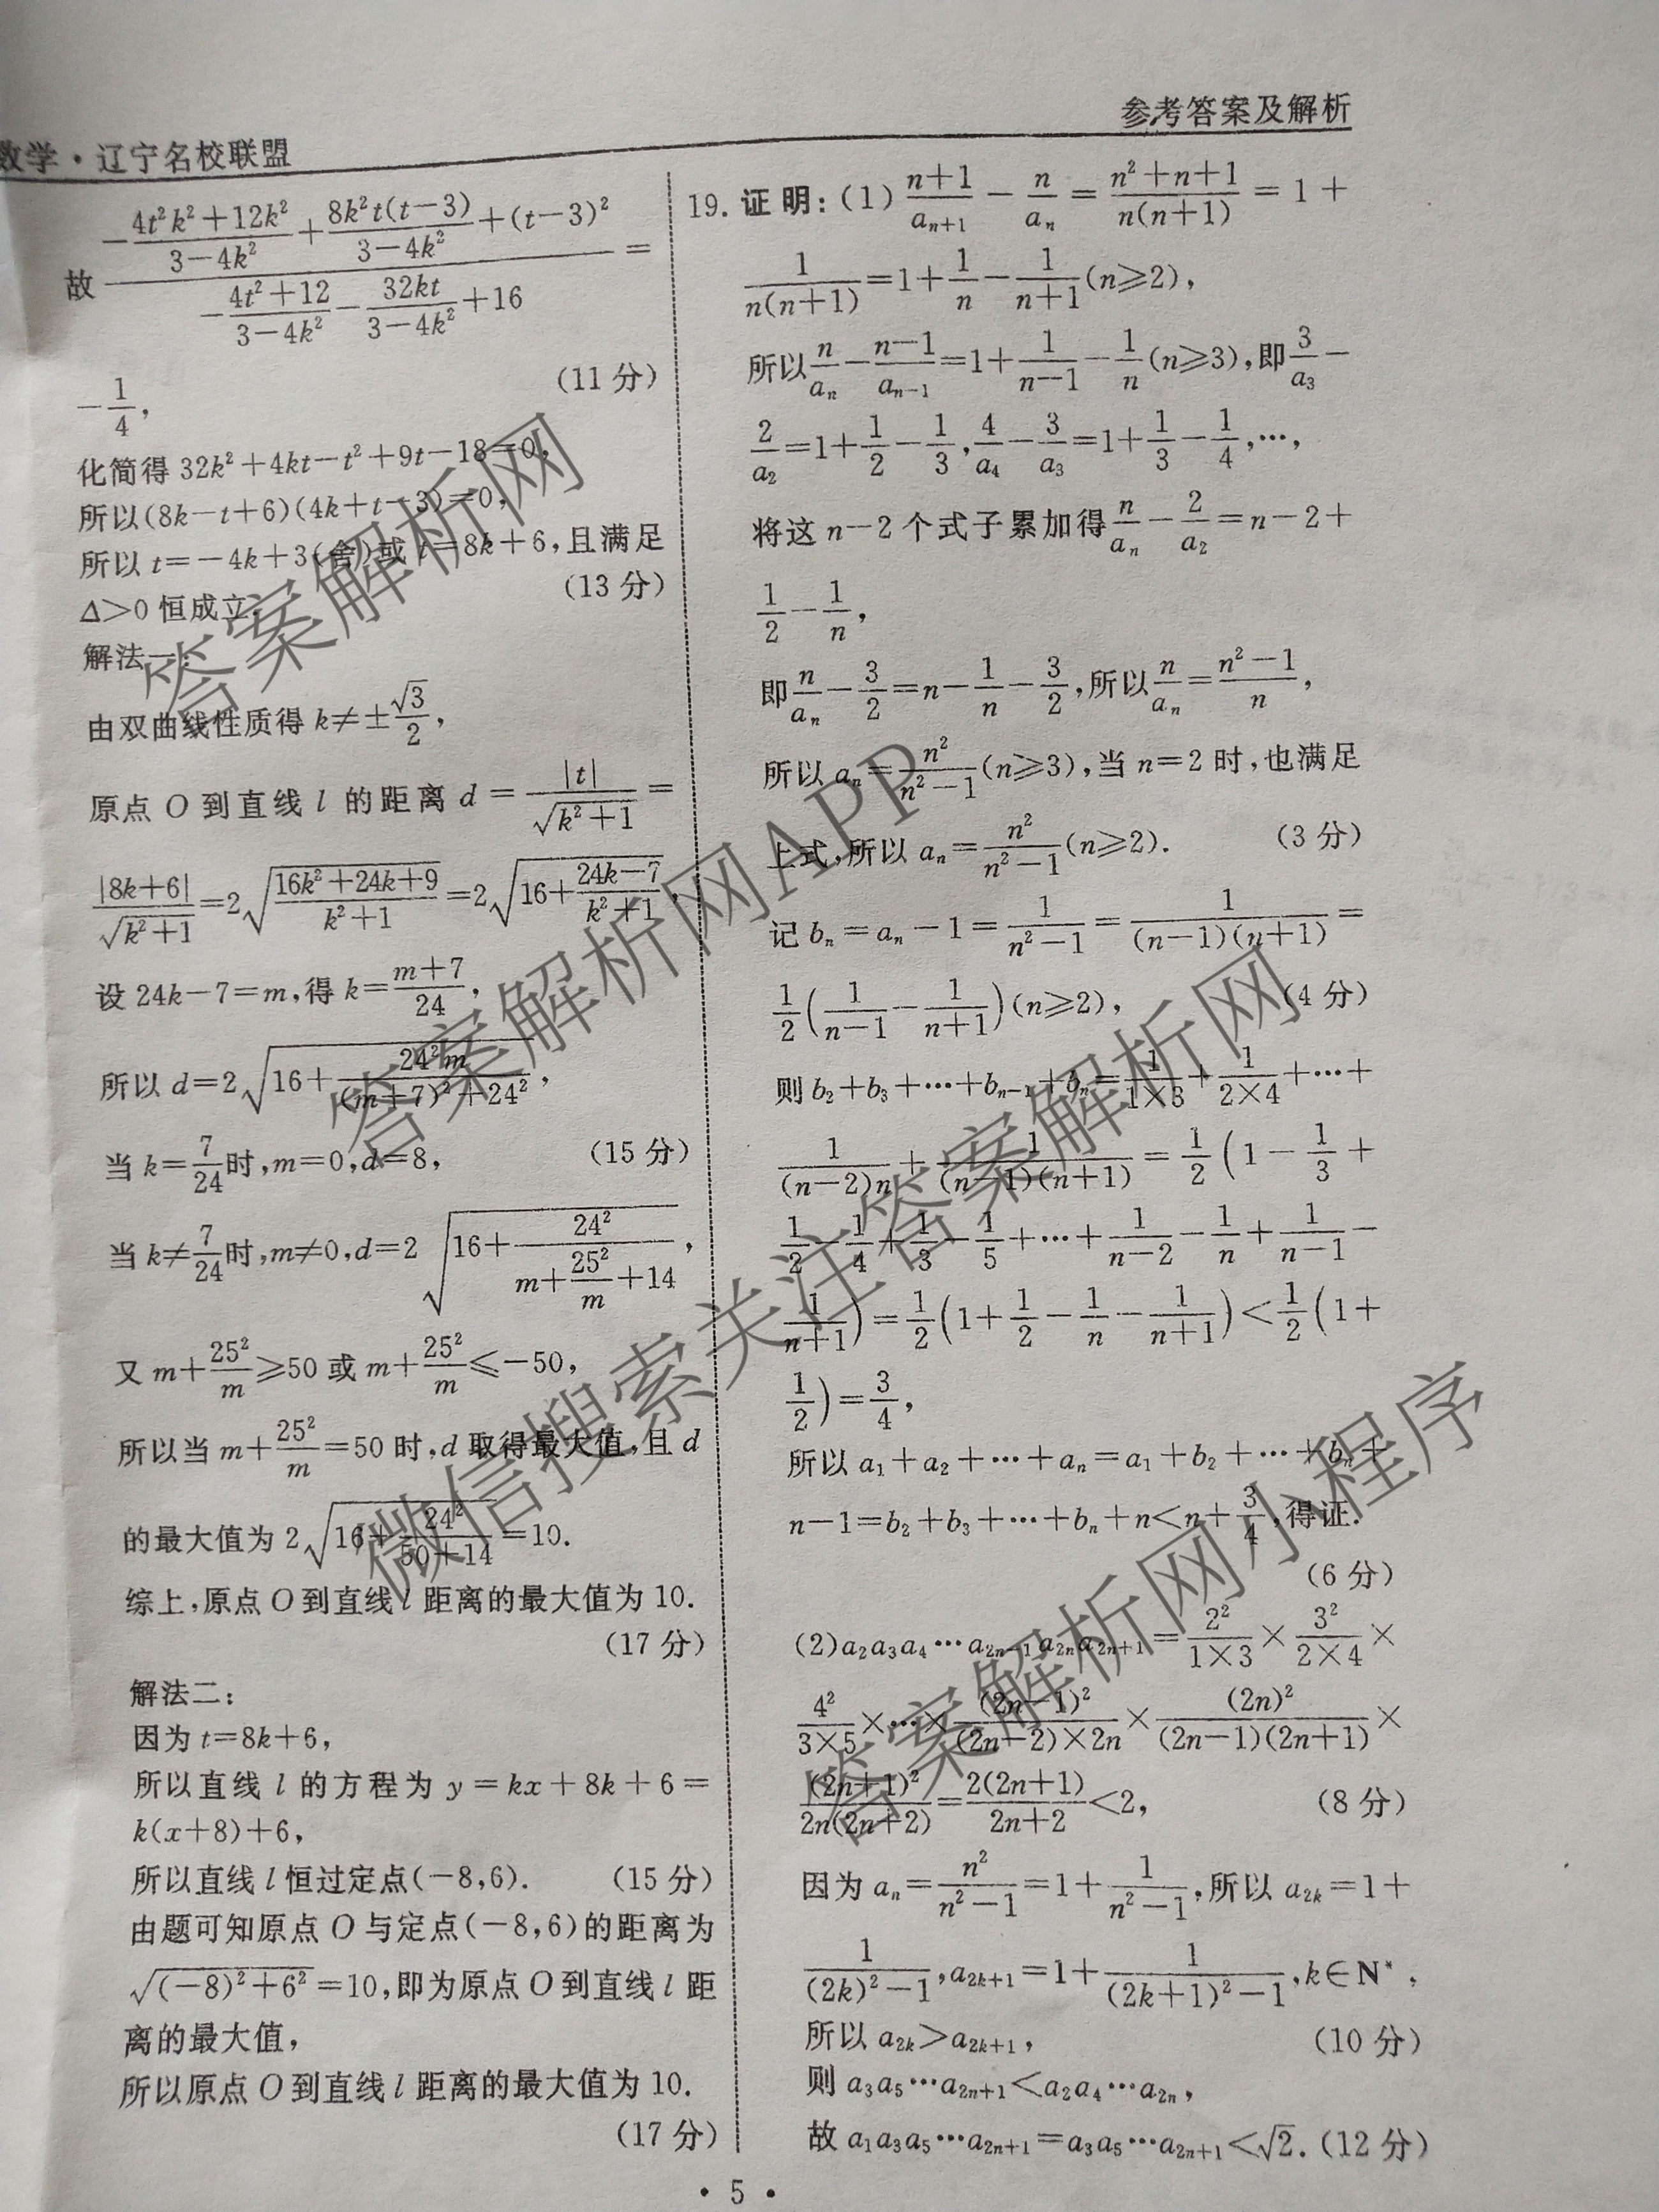 数学·辽宁名校联盟
参考答案及解析
故 \frac{-\frac{4t²k²+12k²}{3-4k²}+\frac{8k²t(t-3)}{3-4k²}+(t-3)²}{-\frac{4t²+12}{3-4k²}-\frac{32kt}{3-4k²}+16} =
-\frac{1}{4}, (11 分)
化简得 32k²+4kt-t²+9t-18=0,
所以(8k-t+6)(4k+t-3)=0,
所以 t=-4k+3(舍)或 t=8k+6,且满足
Δ>0 恒成立. (13 分)
解法一:
由双曲线性质得 k≠±\frac{√3}{2},
原点 O 到直线 l 的距离 d = \frac{|t|}{\sqrt{k²+1}} =
\frac{|8k+6|}{\sqrt{k²+1}}=2\sqrt{\frac{16k²+24k+9}{k²+1}}=2\sqrt{16+\frac{24k-7}{k²+1}},
设 24k-7=m,得 k=\frac{m+7}{24},
所以 d=2\sqrt{16+\frac{24²m}{(m+7)²+24²}},
当 k=\frac{7}{24}时,m=0,d=8, (15 分)
当 k≠\frac{7}{24}时,m≠0,d=2\sqrt{16+\frac{24²}{m+\frac{25²}{m}+14}},
又 m+\frac{25²}{m}≥50 或 m+\frac{25²}{m}≤-50,
所以当 m+\frac{25²}{m}=50 时,d 取得最大值,且 d
的最大值为 2\sqrt{16+\frac{24²}{50+14}}=10.
综上,原点 O 到直线 l 距离的最大值为 10.
(17 分)
解法二:
因为 t=8k+6,
所以直线 l 的方程为 y=kx+8k+6=
k(x+8)+6,
所以直线 l 恒过定点(-8,6). (15 分)
由题可知原点 O 与定点(-8,6)的距离为
\sqrt{(-8)²+6²}=10,即为原点 O 到直线 l 距
离的最大值,
所以原点 O 到直线 l 距离的最大值为 10.
(17 分)
19. 证明:(1) \frac{n+1}{a_{n+1}} - \frac{n}{a_n} = \frac{n²+n+1}{n(n+1)} = 1 +
\frac{1}{n(n+1)}=1+\frac{1}{n}-\frac{1}{n+1}(n≥2),
所以\frac{n}{a_n}-\frac{n-1}{a_{n-1}}=1+\frac{1}{n-1}-\frac{1}{n}(n≥3),即\frac{3}{a_3}-
\frac{2}{a_2}=1+\frac{1}{2}-\frac{1}{3},\frac{4}{a_4}-\frac{3}{a_3}=1+\frac{1}{3}-\frac{1}{4},⋯,
将这 n-2 个式子累加得\frac{n}{a_n}-\frac{2}{a_2}=n-2+
\frac{1}{2}-\frac{1}{n},
即\frac{n}{a_n}-\frac{3}{2}=n-\frac{1}{n}-\frac{3}{2},所以\frac{n}{a_n}=\frac{n²-1}{n},
所以 a_n=\frac{n²}{n²-1}(n≥3),当 n=2 时,也满足
上式,所以 a_n=\frac{n²}{n²-1}(n≥2). (3 分)
记 b_n=a_n-1=\frac{1}{n²-1}=\frac{1}{(n-1)(n+1)}=
\frac{1}{2}(\frac{1}{n-1}-\frac{1}{n+1})(n≥2), (4 分)
则 b_2+b_3+⋯+b_{n-1}+b_n=\frac{1}{1×3}+\frac{1}{2×4}+⋯+
\frac{1}{(n-2)n}+\frac{1}{(n-1)(n+1)}=\frac{1}{2}(1-\frac{1}{3}+
\frac{1}{2}-\frac{1}{4}+\frac{1}{3}-\frac{1}{5}+⋯+\frac{1}{n-2}-\frac{1}{n}+\frac{1}{n-1}-
\frac{1}{n+1})=\frac{1}{2}(1+\frac{1}{2}-\frac{1}{n}-\frac{1}{n+1})<\frac{1}{2}(1+
\frac{1}{2})=\frac{3}{4},
所以 a_1+a_2+⋯+a_n=a_1+b_2+⋯+b_n+
n-1=b_2+b_3+⋯+b_n+n<n+\frac{3}{4},得证.
(6 分)
(2)a_2a_3a_4⋯a_{2n-1}a_{2n}a_{2n+1}=\frac{2²}{1×3}×\frac{3²}{2×4}×
\frac{4²}{3×5}×⋯×\frac{(2n-1)²}{(2n-2)×2n}×\frac{(2n)²}{(2n-1)(2n+1)}×
\frac{(2n+1)²}{2n(2n+2)}=\frac{2(2n+1)}{2n+2}<2, (8 分)
因为 a_n=\frac{n²}{n²-1}=1+\frac{1}{n²-1},所以 a_{2k}=1+
\frac{1}{(2k)²-1},a_{2k+1}=1+\frac{1}{(2k+1)²-1},k∈N*,
所以 a_{2k}>a_{2k+1}, (10 分)
则 a_3a_5⋯a_{2n+1}<a_2a_4⋯a_{2n},
故 a_1a_3a_5⋯a_{2n+1}=a_3a_5⋯a_{2n+1}<√2. (12 分)
答案解析网
答案解析网APP
微信搜索关注答案解析网
答案解析网小程序
· 5 ·